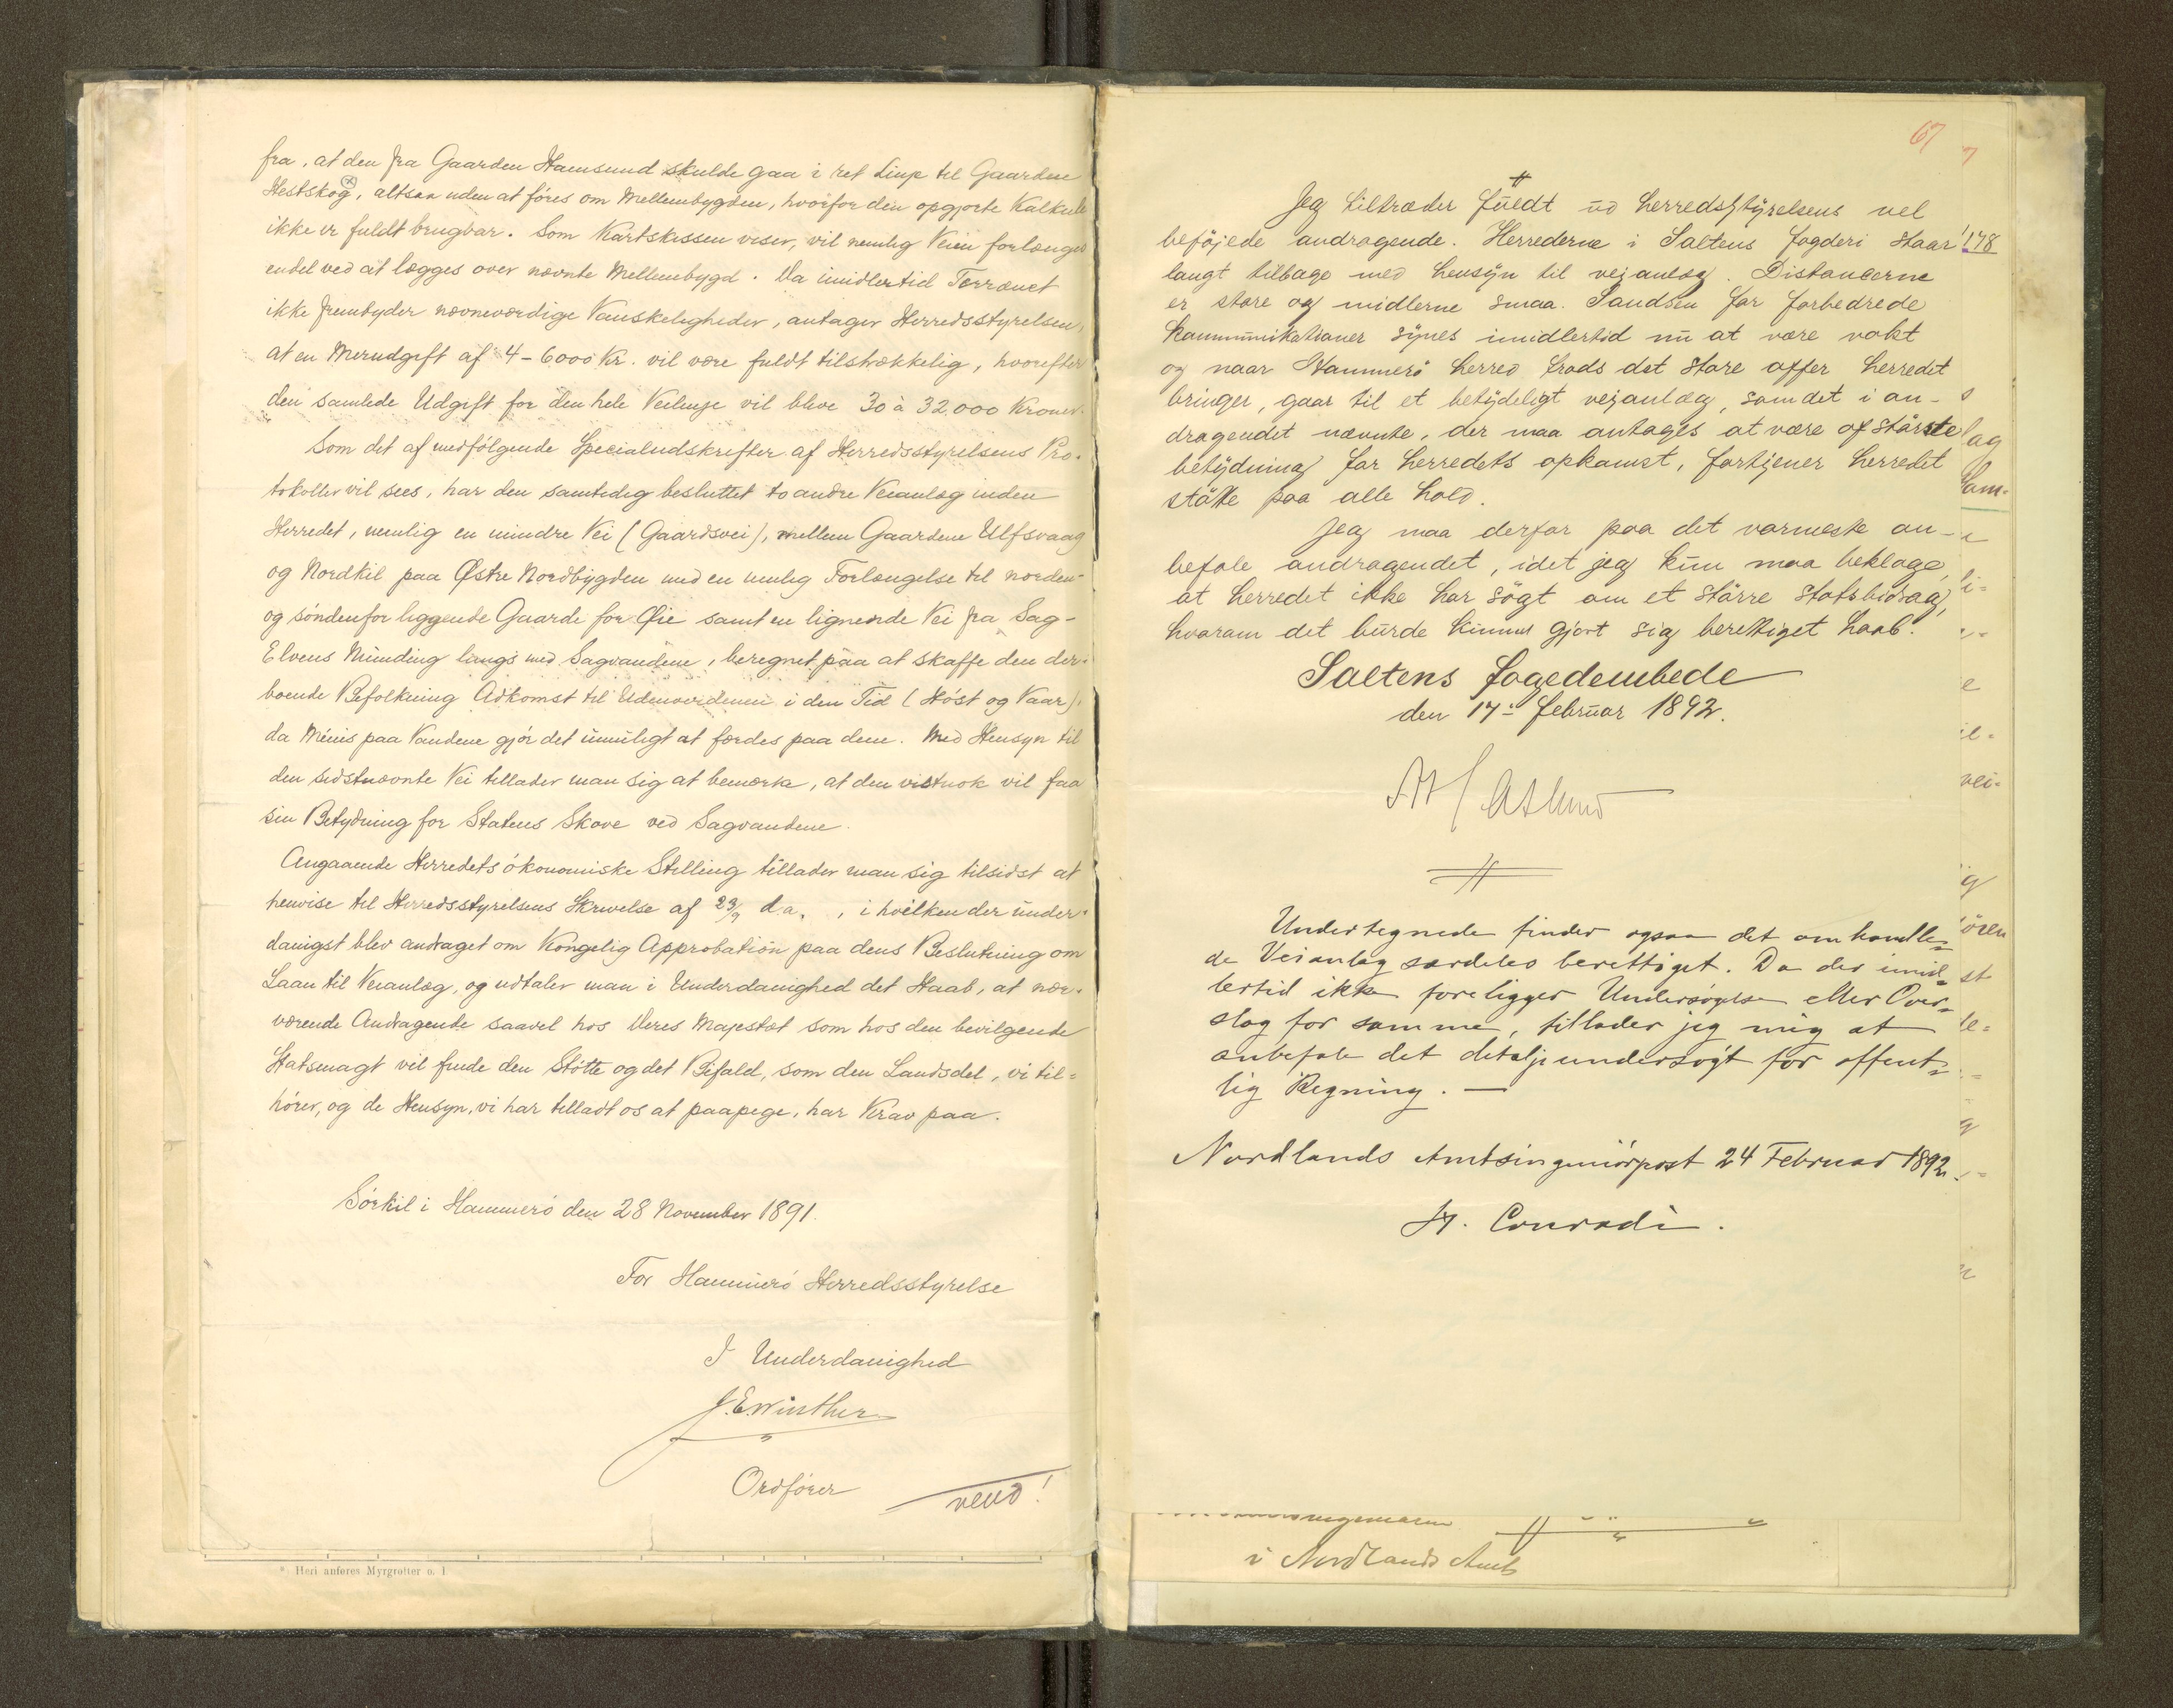 fra, at den fra Gaarden Hamsund skulde gaa i ret Linje til Gaarden
Hestskog, altsaa uden at föres om Mellembygden, hvorfor den opgjorte Kalkule
ikke er fuldt brugbar. Som Kartskissen viser, vil nemlig Veien forlænges
endel ved at lægges over nævnte Mellembygd. Da imidlertid Terrænet
ikke frembyder nævneværdige Vanskeligheder, antager Herredsstyrelsen,
at en Merudgift af 4-6000 Kr. vil være fuldt tilstrækkelig, hvorefter
den samlede Udgift for den hele Veilinje vil blive 30 à 32,000 Kroner.
Som det af medfölgende Specialudskrifter af Herredsstyrelsens Pro-
tokoller vil sees, har den samtidig besluttet to andre Veianlæg inden
Herredet, nemlig en mindre Vei (Gaardsvei), mellem Gaardene Ulfsvaag
og Nordkil paa Østre Nordbygden med en mulig Forlængelse til norden-
og söndenfor liggende Gaarde for Øie samt en lignende Vei fra Sag-
Elvens Munding langs med Sagvandene, beregnet paa at skaffe den der-
boende Befolkning Adkomst til Udenverdenen i den Tid (Höst og Vaar),
da Menis paa Vandene gjör det umuligt at færdes paa dem. Med Hensyn til
den sidstnævnte Vei tillader man sig at bemærke, at den vistnok vil faa
sin Betydning for Statens Skove ved Sagvandene.
Angaaende Herredets ökonomiske Stilling tillader man sig tilsidst at
henvise til Herredsstyrelsens Skrivelse af 23/9 d.a., i hvilken der under-
danigst blev andraget om Kongelig Approbation paa dens Beslutning om
Laan til Veianlæg, og udtaler man i Underdanighed det Haab, at nær-
værende Andragende saavel hos Deres Majestæt som hos den bevilgende
Statsmagt vil finde den Stötte og det Bifald, som den Landsdel, vi til=
hörer, og de Hensyn, vi har tilladt os at paapege, har Krav paa.
Sörkil i Hammerö den 28 November 1891.
For Hammerö Herredsstyrelse
I Underdanighed
J.E. Winther
Ordförer
vend!
* Heri anføres Myrgrøfter o. l.
67
Jeg tiltræder fuldt ud herredsstyrelsens vel
beföjede andragende. Herrederne i Saltens fogderi staar
178
langt tilbage med hensyn til vejanlæg. Distancerne
er store og midlerne smaa. Sandsen for forbedrede
kommunikationer synes imidlertid nu at være vakt
og naar Hammerö herred trods det store offer herredet
bringer, gaar til et betydeligt vejanlæg, som det i an-
dragendet nævnte, der maa antages at være af störste
betydning for herredets opkomst, fortjener herredet
stötte paa alle hold.
Jeg maa derfor paa det varmeste an-
befale andragendet, idet jeg kun maa beklage,
at herredet ikke har sögt om et större statsbidrag,
hvorom det burde kunnet gjort sig berettiget haab.
Saltens fogedembede
den 17- februar 1892.
Undertegnede finder ogsaa det omhandle=
de Veianlæg særdeles berettiget. Da der imid=
lertid ikke foreligger Undersögelse eller Over=
slag for samme, tillader jeg mig at
anbefale det detaljeundersögt for offent=
lig Regning. —
Nordlands Amtsingeniörpost 24 Februar 1892.
H. Conradi.
i Nordlands Amt